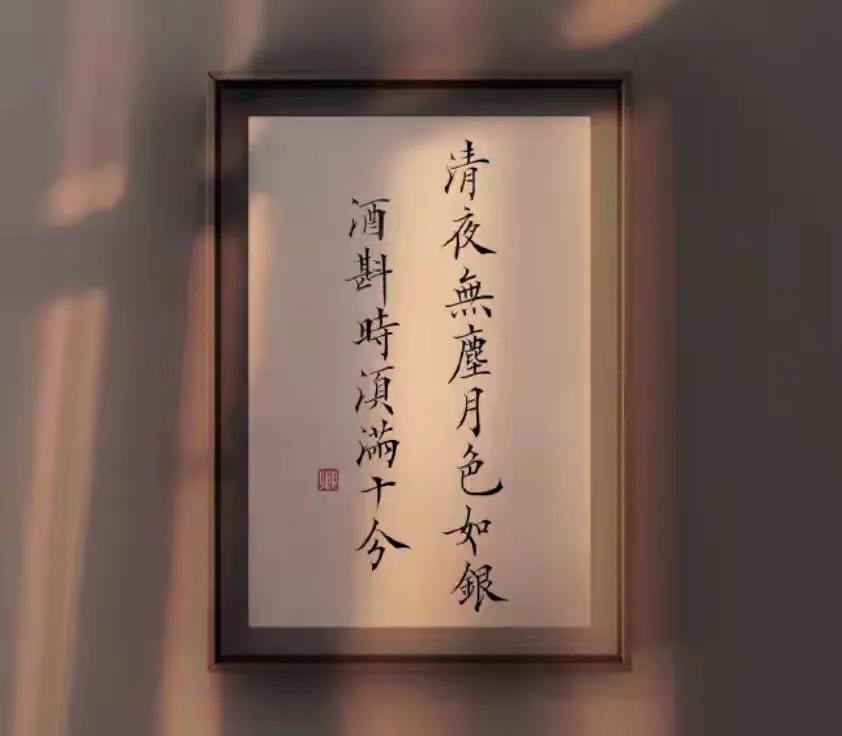 清夜無塵月色如銀
酒斟時須滿十分